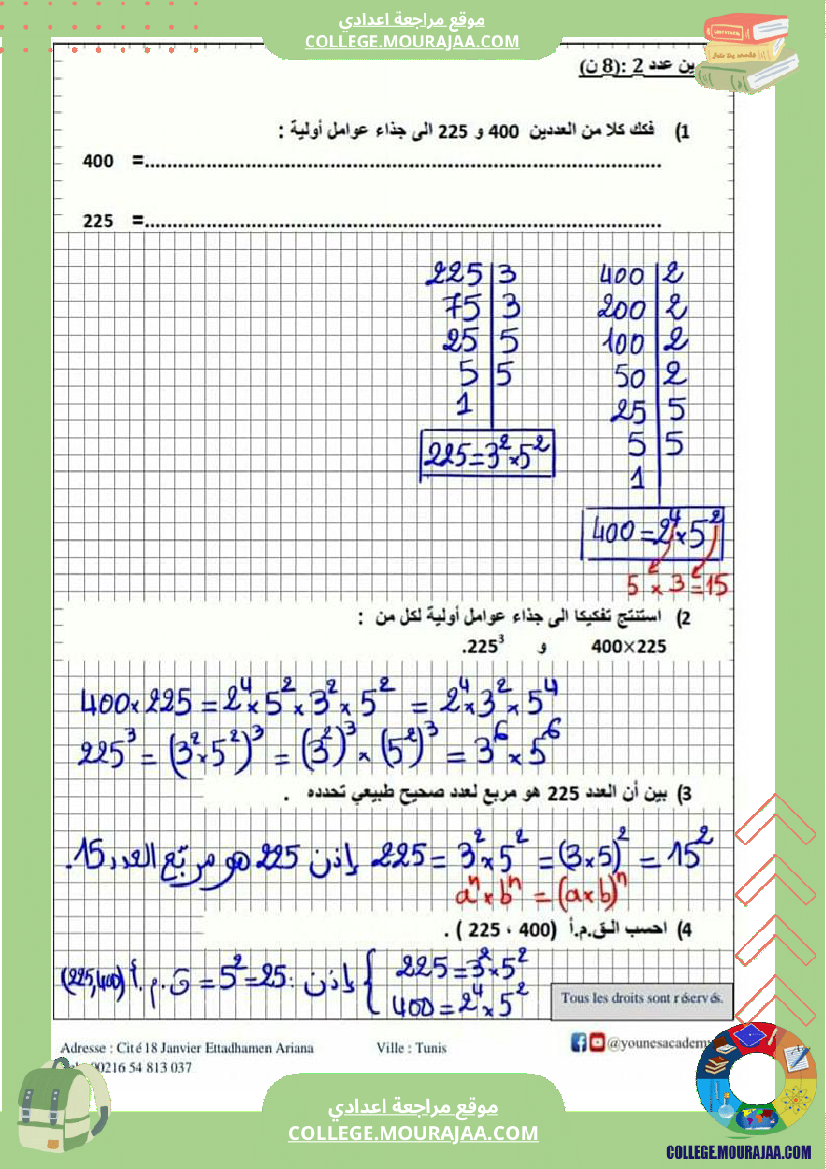 موقع مراجعة اعدادي
COLLEGE.MOURAJAA.COM
ين عدد 2 :(8 ن)
1) فكك كلا من العددين 400 و 225 الى جذاء عوامل أولية :
400 =......................................................................................
225 =......................................................................................
225 | 3
75 | 3
25 | 5
5 | 5
1
225=3²×5²
400 | 2
200 | 2
100 | 2
50 | 2
25 | 5
5 | 5
1
400=2⁴×5²
5 × 3 = 15
2) استنتج تفكيكا الى جذاء عوامل أولية لكل من :
400×225 و 225³.
400×225 = 2⁴×5²×3²×5² = 2⁴×3²×5⁴
225³ = (3²×5²)³ = (3²)³×(5²)³ = 3⁶×5⁶
3) بين أن العدد 225 هو مربع لعدد صحيح طبيعي تحدده .
225 = 3²×5² = (3×5)² = 15² إذن 225 هو مربع العدد 15.
aⁿ×bⁿ = (a×b)ⁿ
4) احسب الـق.م.أ (400 ، 225 ) .
225=3²×5²
400=2⁴×5²
إذن ق.م.أ (225,400) = 5² = 25.
Tous les droits sont réservés.
Adresse : Cité 18 Janvier Ettadhamen Ariana Ville : Tunis @younesacadem
00216 54 813 037
موقع مراجعة اعدادي
COLLEGE.MOURAJAA.COM
COLLEGE.MOURAJAA.COM